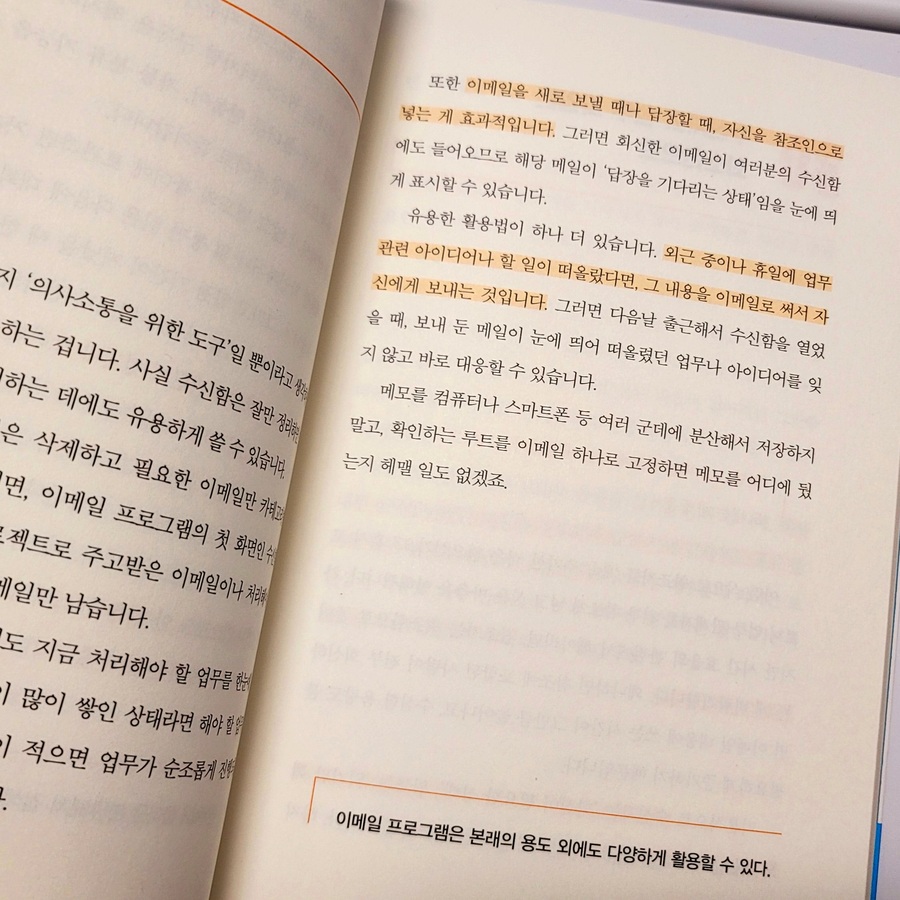 지 '의사소통을 위한 도구'일 뿐이라고
하는 겁니다. 사실 수신함은 잘만 정리하면
하는 데에도 유용하게 쓸 수 있습니다.
은 삭제하고 필요한 이메일만
면, 이메일 프로그램의 첫 화면인
로젝트로 주고받은 이메일이나
메일만 남습니다.
도 지금 처리해야 할 업무를
이 많이 쌓인 상태라면 해야 할
이 적으면 업무가 순조롭게
또한 이메일을 새로 보낼 때나 답장할 때, 자신을 참조인으로
넣는 게 효과적입니다. 그러면 회신한 이메일이 여러분의 수신함
에도 들어오므로 해당 메일이 '답장을 기다리는 상태'임을 눈에 띄
게 표시할 수 있습니다.
유용한 활용법이 하나 더 있습니다. 외근 중이나 휴일에 업무
관련 아이디어나 할 일이 떠올랐다면, 그 내용을 이메일로 써서 자
신에게 보내는 것입니다. 그러면 다음날 출근해서 수신함을 열었
을 때, 보내 둔 메일이 눈에 띄어 떠올렸던 업무나 아이디어를 잊
지 않고 바로 대응할 수 있습니다.
메모를 컴퓨터나 스마트폰 등 여러 군데에 분산해서 저장하지
말고, 확인하는 루트를 이메일 하나로 고정하면 메모를 어디에 뒀
는지 헤맬 일도 없겠죠.
이메일 프로그램은 본래의 용도 외에도 다양하게 활용할 수 있다.